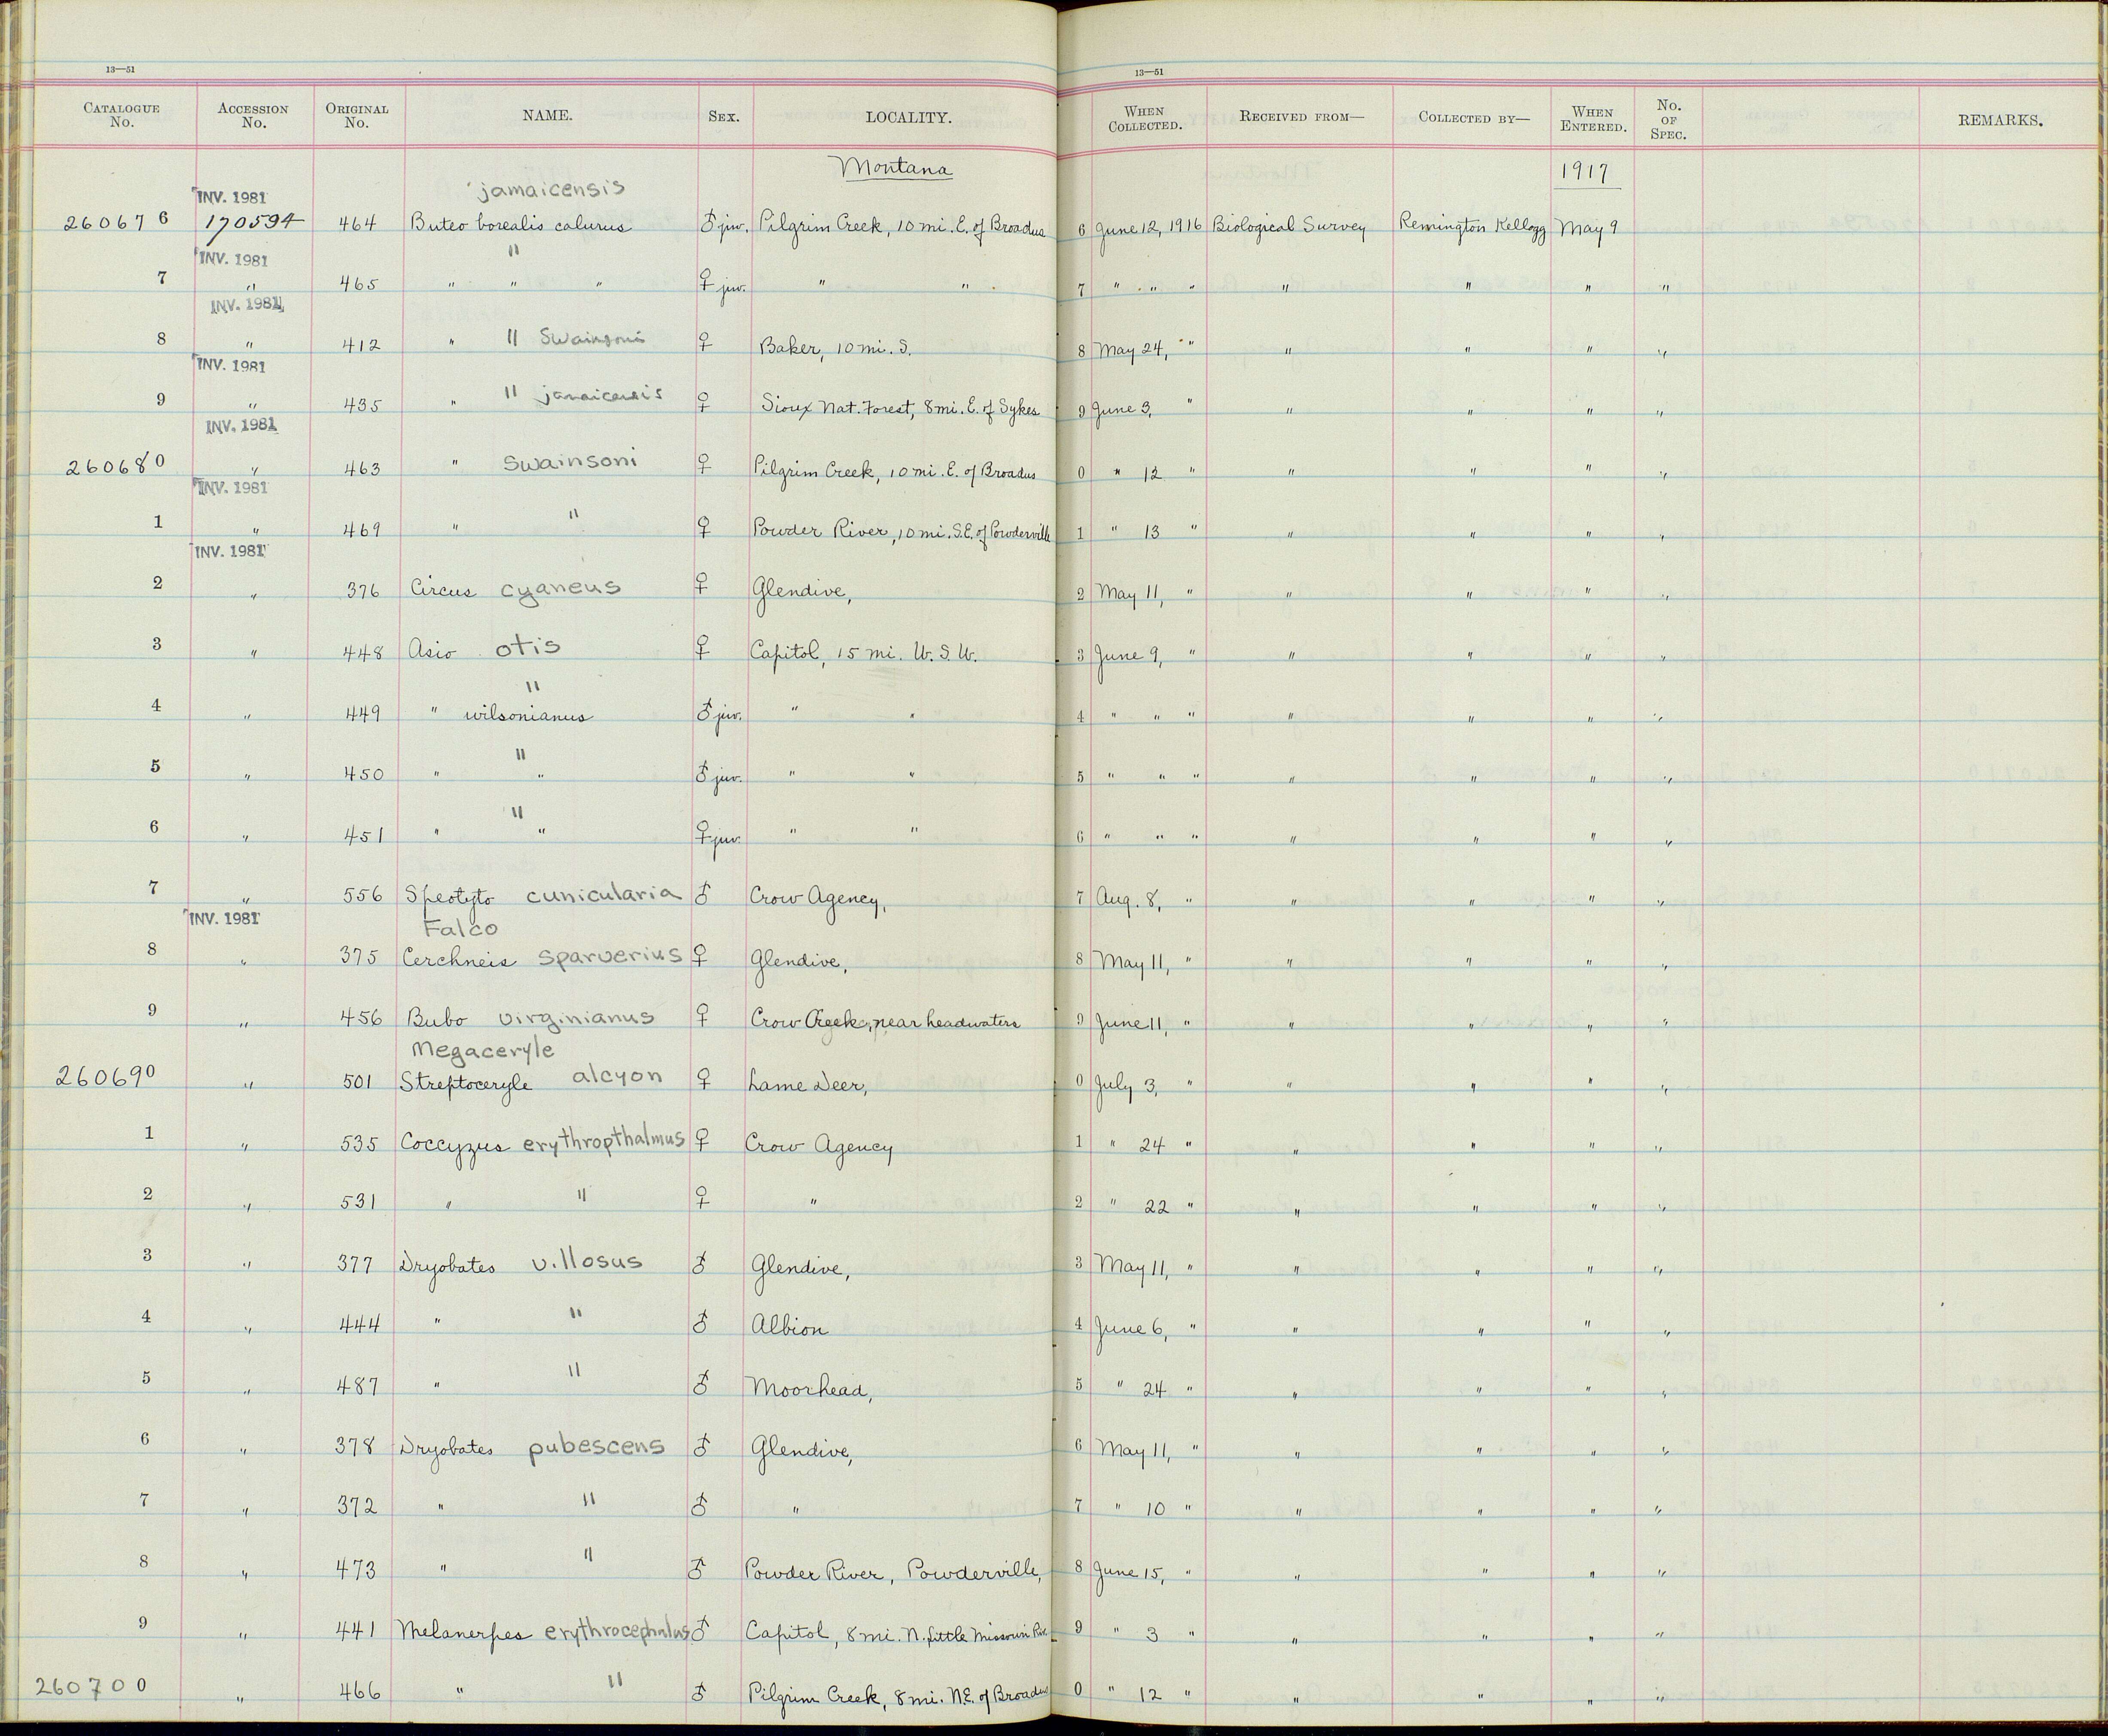 13—51 13—51
CATALOGUE No. ACCESSION No. ORIGINAL No. NAME. SEX. LOCALITY. WHEN COLLECTED. RECEIVED FROM— COLLECTED BY— WHEN ENTERED. No. OF SPEC. REMARKS.
Montana 1917
INV. 1981 jamaicensis
260676 170594 464 Buteo borealis calurus ♂ juv. Pilgrim Creek, 10 mi. E. of Broadus 6 June 12, 1916 Biological Survey Remington Kellogg May 9
INV. 1981 "
7 " 465 " " " ♀ juv. " " 7 " " " " " " "
INV. 1981
8 " 412 " " Swainsoni ♀ Baker, 10 mi. S. 8 May 24, " " " " "
INV. 1981
9 " 435 " " jamaicensis ♀ Sioux Nat. Forest, 8 mi. E. of Sykes 9 June 3, " " " " "
INV. 1981
260680 " 463 " Swainsoni ♀ Pilgrim Creek, 10 mi. E. of Broadus 0 " 12 " " " " "
INV. 1981
1 " 469 " " ♀ Powder River, 10 mi. S.E. of Powderville 1 " 13 " " " " "
INV. 1981
2 " 376 Circus cyaneus ♀ Glendive, 2 May 11, " " " " "
3 " 448 Asio otis ♀ Capitol, 15 mi. W. S. W. 3 June 9, " " " " "
"
4 " 449 " wilsonianus ♂ juv. " " 4 " " " " " " "
"
5 " 450 " " ♂ juv. " " 5 " " " " " " "
"
6 " 451 " " ♀ juv. " " 6 " " " " " " "
7 " 556 Speotyto cunicularia ♂ Crow Agency, 7 Aug. 8, " " " " "
INV. 1981 Falco
8 " 375 Cerchneis sparverius ♀ Glendive, 8 May 11, " " " " "
9 " 456 Bubo virginianus ♀ Crow Creek, near headwaters 9 June 11, " " " " "
Megaceryle
260690 " 501 Streptoceryle alcyon ♀ Lame Deer, 0 July 3, " " " " "
1 " 535 Coccyzus erythropthalmus ♀ Crow Agency 1 " 24 " " " " "
2 " 531 " " ♀ " 2 " 22 " " " " "
3 " 377 Dryobates villosus ♂ Glendive, 3 May 11, " " " " "
4 " 444 " " ♂ Albion 4 June 6, " " " " "
5 " 487 " " ♂ Moorhead, 5 " 24 " " " " "
6 " 378 Dryobates pubescens ♂ Glendive, 6 May 11, " " " " "
7 " 372 " " ♂ " 7 " 10 " " " " "
8 " 473 " " ♂ Powder River, Powderville, 8 June 15, " " " " "
9 " 441 Melanerpes erythrocephalus ♂ Capitol, 8 mi. N. Little Missouri Riv. 9 " 3 " " " " "
260700 " 466 " " ♂ Pilgrim Creek, 8 mi. N.E. of Broadus 0 " 12 " " " " "